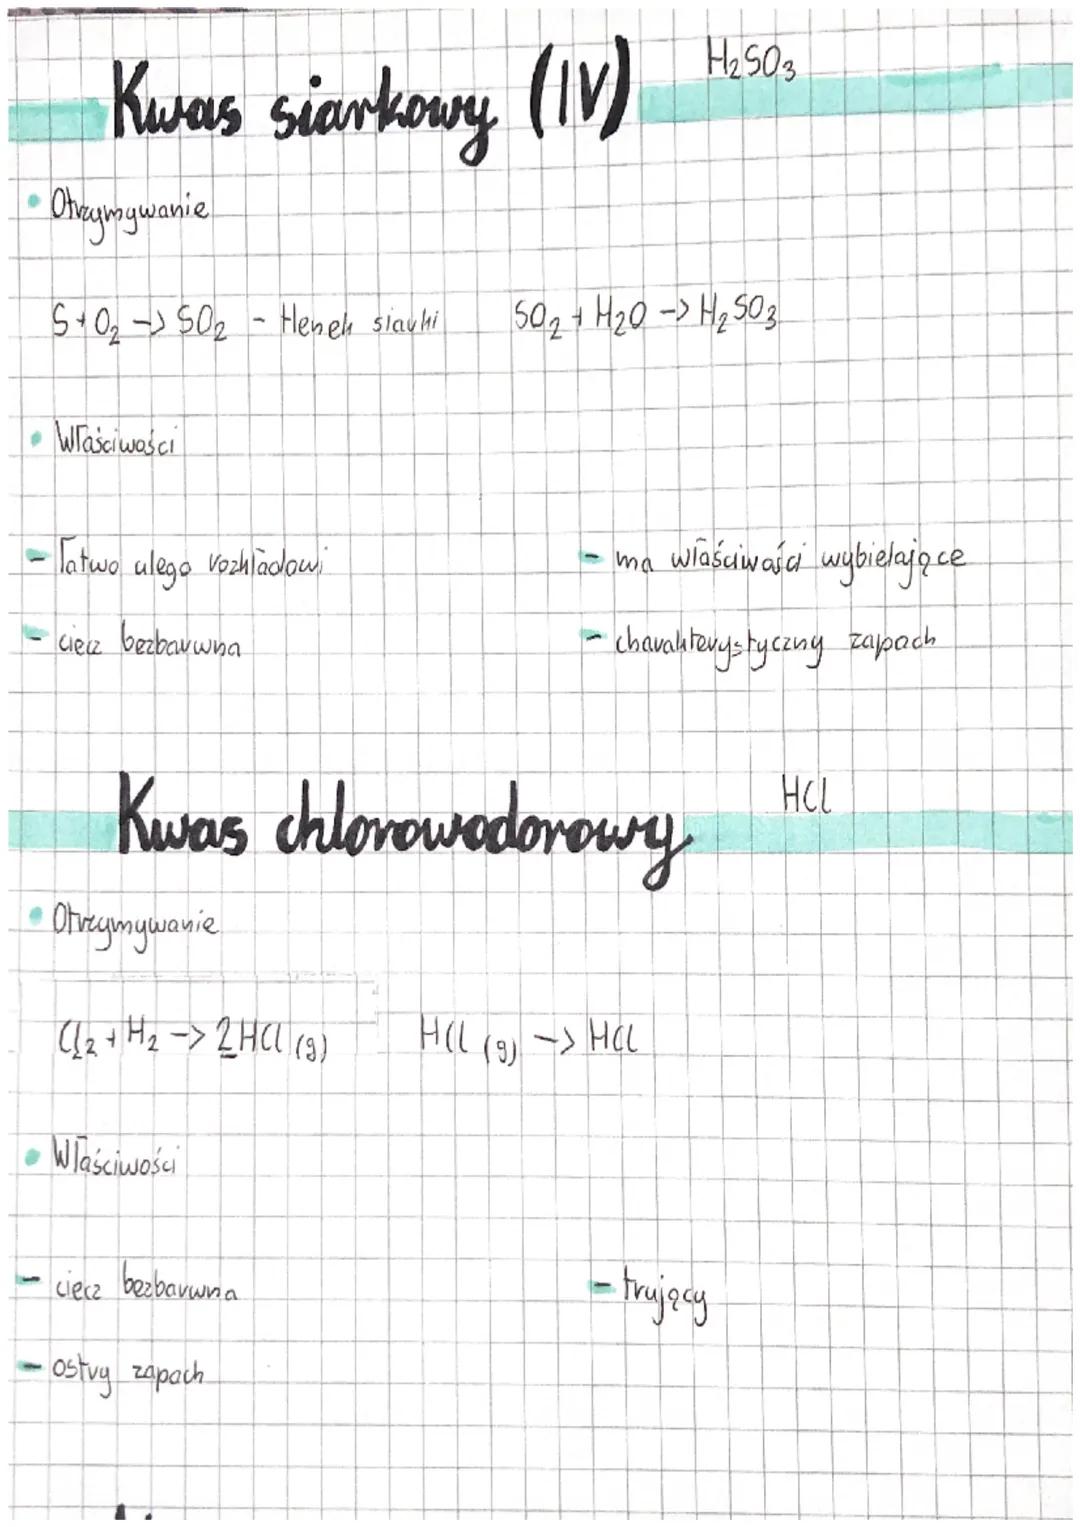 Kwas siarkowy (IV) H₂SO₃
• Otrzymywanie
S + O₂ -> SO₂ - tlenek siarki SO₂ + H₂O -> H₂SO₃
• Właściwości
- łatwo ulega rozkładowi - ma właściwości wybielające
- ciecz bezbarwna - charakterystyczny zapach
Kwas chlorowodorowy HCl
• Otrzymywanie
Cl₂ + H₂ -> 2HCl (g) HCl (g) -> HCl
• Właściwości
- ciecz bezbarwna - trujący
- ostry zapach